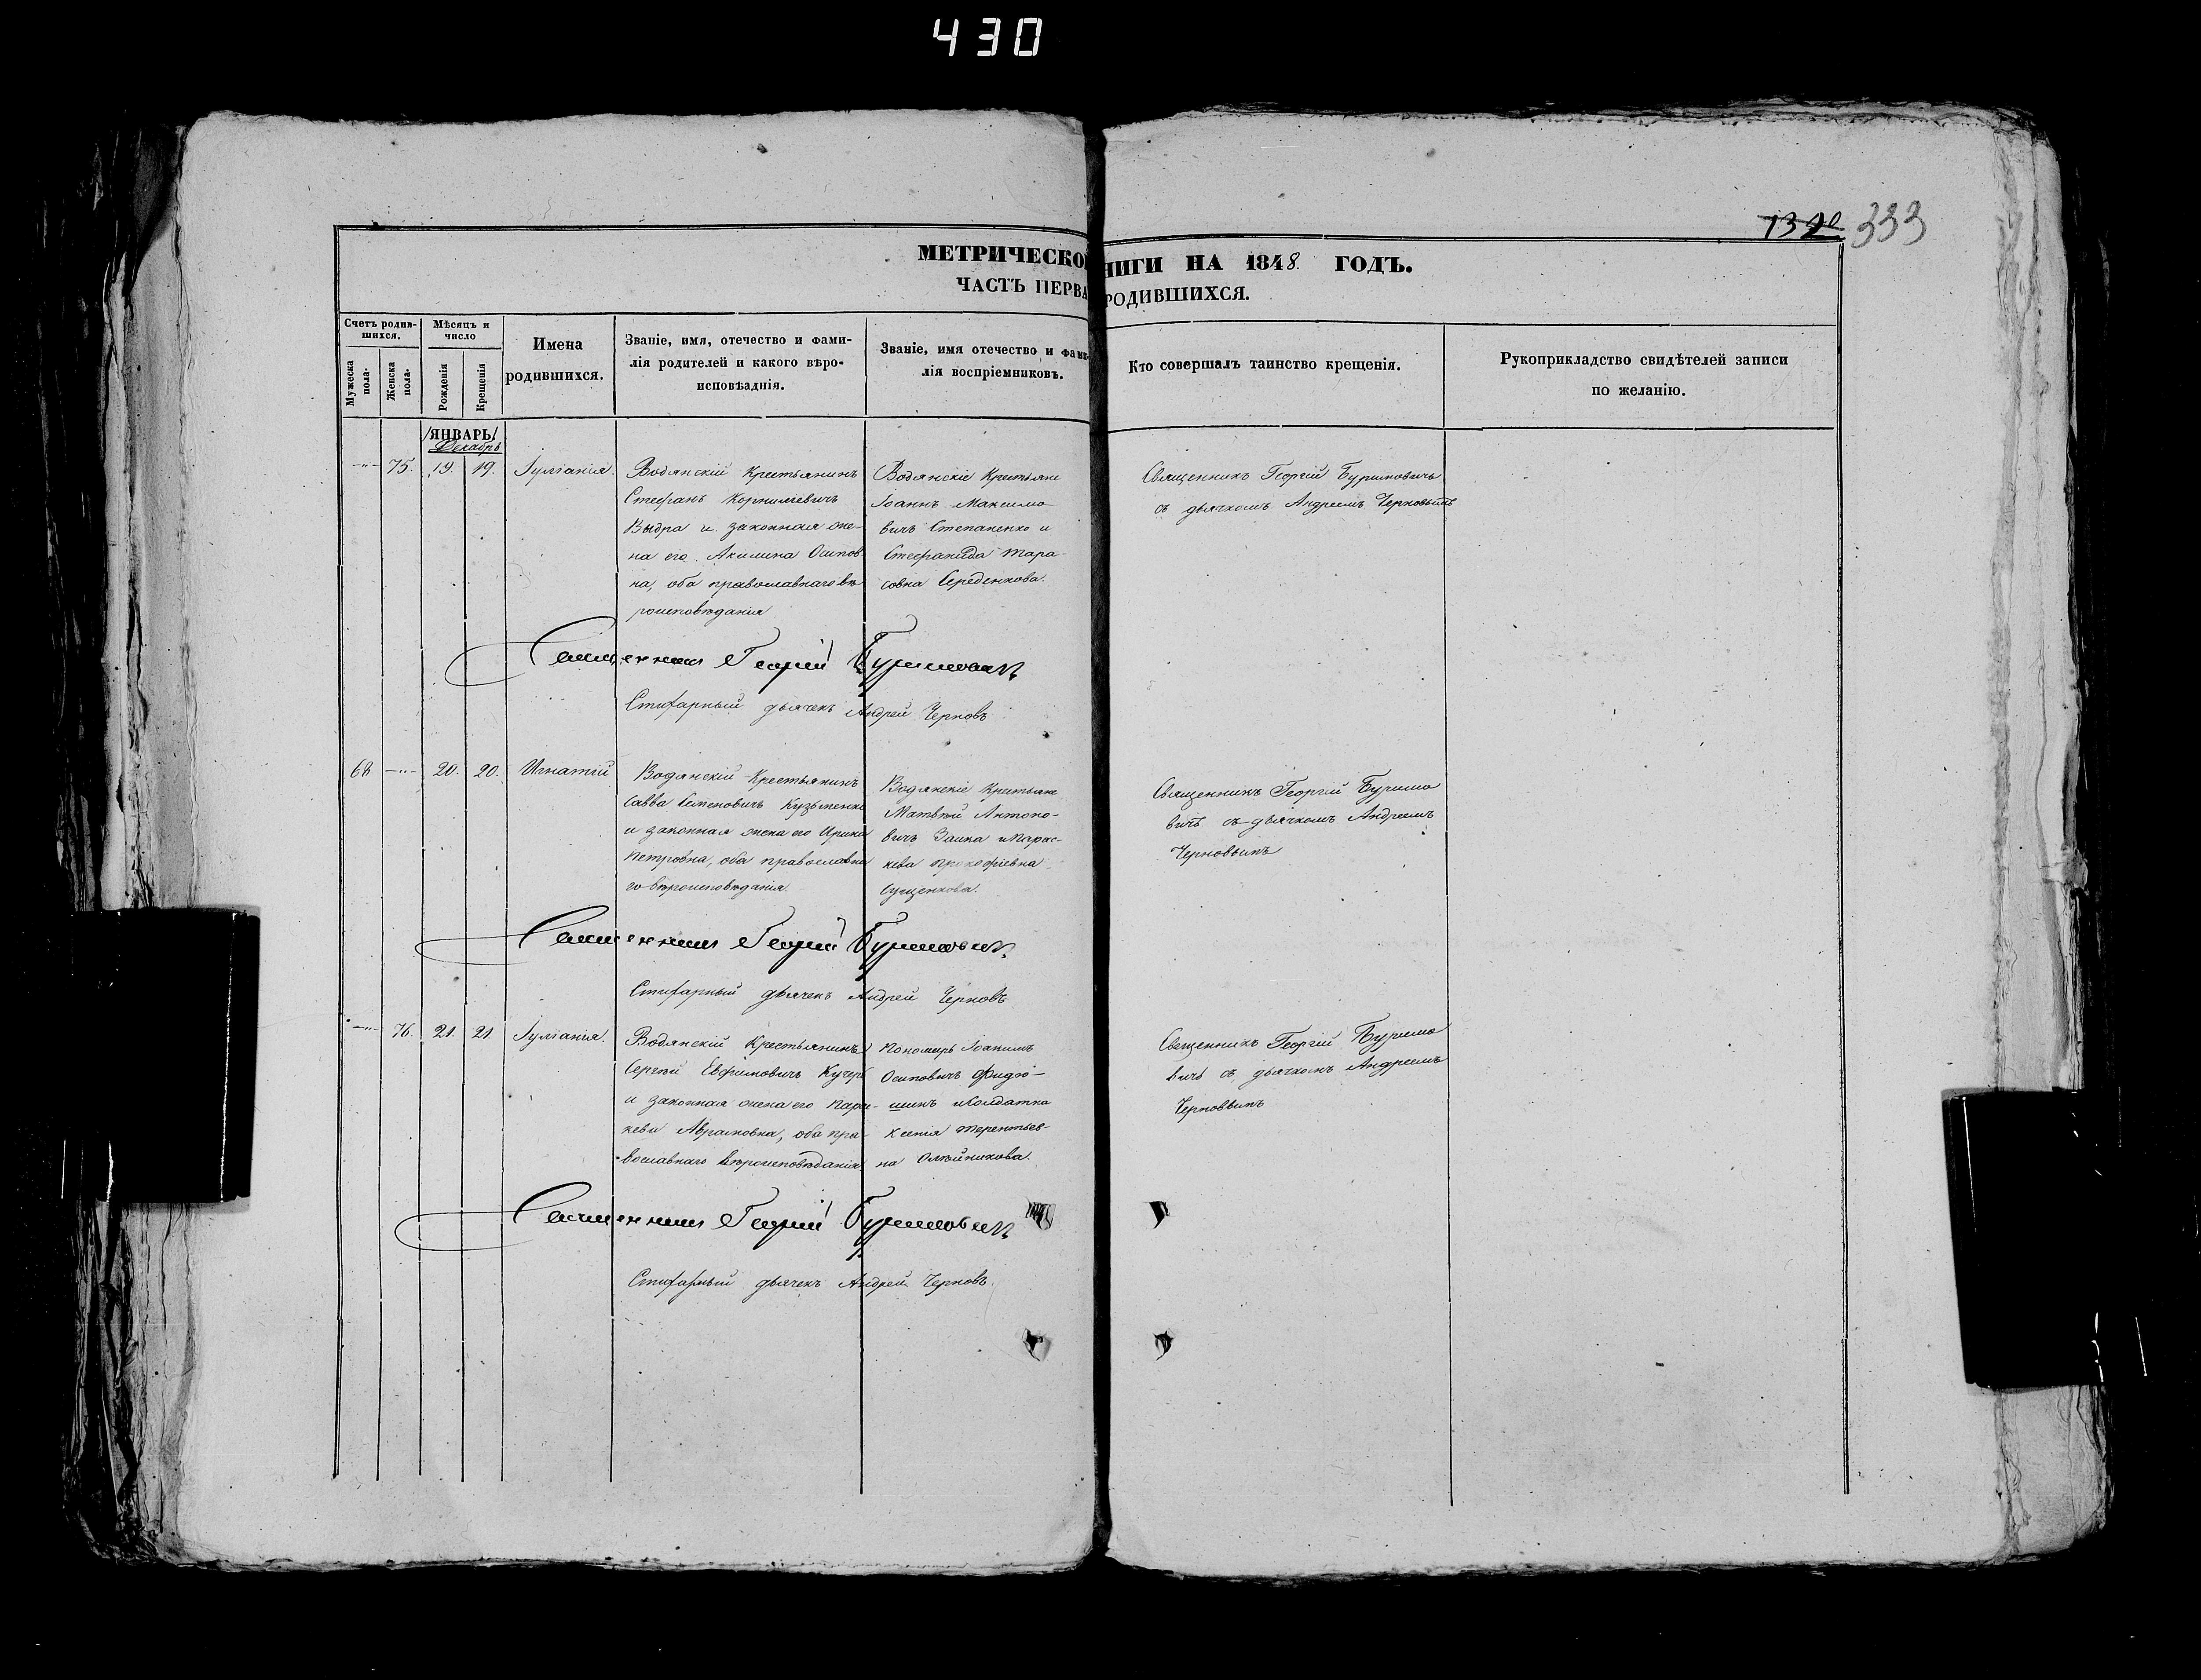 430
1320 333
МЕТРИЧЕСКО НИГИ НА 1848. ГОДЪ.
ЧАСТЬ ПЕРВА РОДИВШИХСЯ.
Счетъ родив-
шихся.
Мужеска пола.
Женска пола.
Мѣсяцъ и
число
Рожденія
Крещенія
Имена
родившихся.
Званіе, имя, отечество и фами-
лія родителей и какого вѣро-
исповѣаднія.
Званіе, имя отечество и фами-
лія воспріемниковъ.
Кто совершалъ таинство крещенія.
Рукоприкладство свидѣтелей записи
по желанію.
/ЯНВАРЬ/
Декабрь
—"— 75. 19. 19. Іуліанія.
Водянскій Крестьянинъ
Стефанъ Корниліевичъ
Выдра и законная же-
на его Акилина Осипов-
на, оба православнаго вѣ
роисповѣданія
Водянскіе Крестьяне
Іоаннъ Максимо-
вичъ Степаненко и
Стефанида Тара-
совна Середенкова.
Священникъ Георгій Буримовичъ
съ дьячкомъ Андреемъ Черновымъ
Священникъ Георгій Буримовичъ
Стихарный дьячекъ Андрей Черновъ
68 —"— 20. 20. Игнатій
Водянскій Крестьянинъ
Савва Семеновичъ Кузьменко
и законная жена его Ирина
Петровна, оба православна
го вѣроисповѣданія.
Водянскіе Крестьяне
Матвѣй Антоно-
вичъ Заика и Парас-
кева Прокофіевна
Сущенкова.
Священникъ Георгій Буримо
вичъ съ дьячкомъ Андреемъ
Черновымъ
Священникъ Георгій Буримовичъ
Стихарный дьячекъ Андрей Черновъ
—"— 76. 21. 21. Іуліанія.
Водянскій Крестьянинъ
Сергѣй Евфимовичъ Кучеръ
и законная жена его Парас-
кева Аврамовна, оба пра-
вославнаго вѣроисповѣданія.
Пономарь Іоакимъ
Осиповичъ
и Солдатка
Ксенія Терентьев-
на Олѣйникова.
Священникъ Георгій Буримо
вичъ съ дьячкомъ Андреемъ
Черновымъ
Священникъ Георгій Буримовичъ
Стихарный дьячекъ Андрей Черновъ